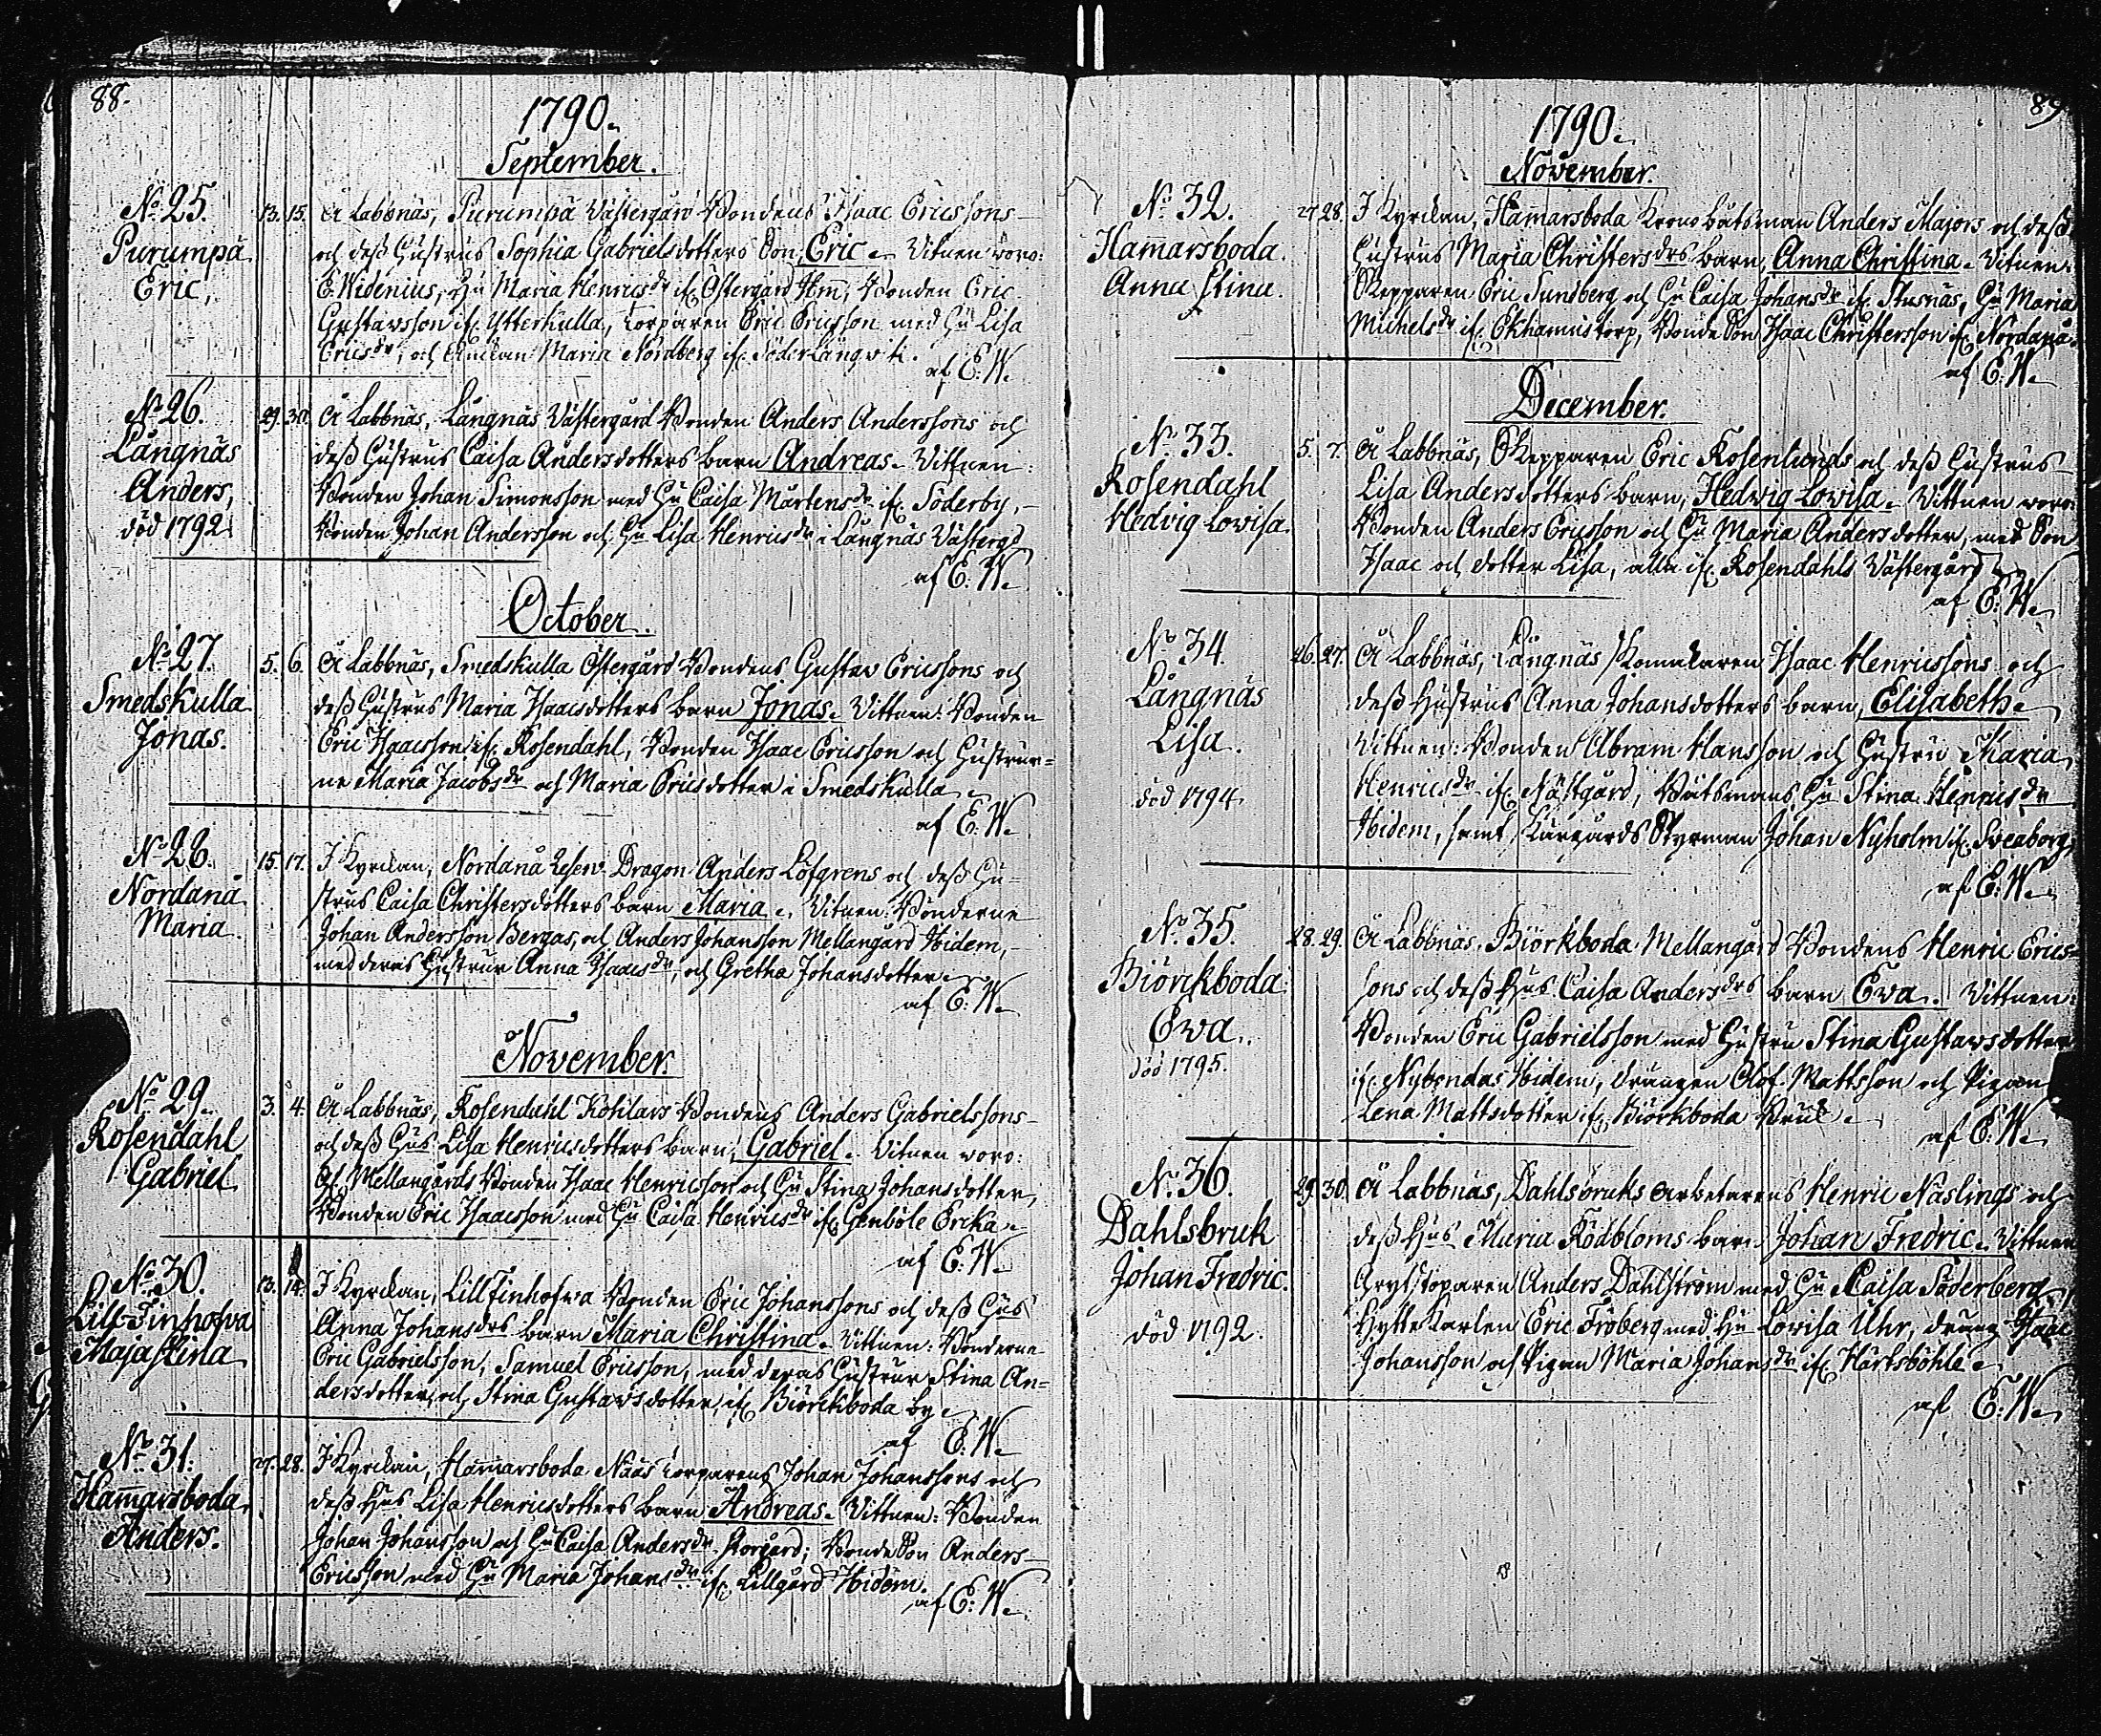 88.
1790.
September.
No 25.
Purumpä
Eric.
13. 15. Å Labbnäs, Purumpä Wästergård Bondens Isaac Ericssons
och dess Hustrus Sophia Gabrielsdotters Son, Eric. Vitnen woro:
E. Widenius, Hu Maria Henricsdr if. Östergård Ibm, Bonden Eric
Gustavsson if. Ytterkulla, torparen Eric Ericsson med Hu Lisa
Ericsdr, och Enckan Maria Nordberg if. Söderlångwik.
af E. W.
No 26.
Långnäs
Anders,
död 1792.
29. 30. Å Labbnäs, Långnäs Västergård Bonden Anders Anderssons och
dess Hustrus Caisa Andersdotters barn Andreas. Vittnen:
Bonden Johan Simonsson med Hu Caisa Mårtensdr if. Söderby,
Bonden Johan Andersson och Hu Lisa Henricsdr i Långnäs Västergd
af E. W.
October.
No 27.
Smedskulla
Jonas.
5. 6. Å Labbnäs, Smedskulla Östergård Bondens Gustav Ericssons och
dess Hustrus Maria Isaacsdotters barn Jonas. Vittnen: Bonden
Eric Isaacsson if. Rosendahl, Bonden Isaac Ericsson och Hustrur=
ne Maria Jacobsdr och Maria Ericsdotter i Smedskulla.
af E. W.
No 28.
Nordanå
Maria.
15. 17. I Kyrckan, Nordanå Reserv Dragon Anders Löfgrens och dess Hu=
strus Caisa Christersdotters barn Maria. Vitnen: Bönderne
Johan Andersson Bergas, och Anders Johansson Mellangård Ibidem,
med deras Hustrur Anna Isaacsdr, och Gretha Johansdotter.
af E. W.
November.
No 29.
Rosendahl
Gabriel.
3. 4. Å Labbnäs, Rosendahl Kohlars Bondens Anders Gabrielssons
och dess Hus Lisa Henricsdotters barn, Gabriel. Vitnen woro:
If. Mellangårds Bonden Isaac Henricsson och Hu Stina Johansdotter,
Bonden Eric Isaacsson med Hu Caisa Henricsdr if. Genböle Ericka.
af E. W.
No 30.
Lill-Finhofva
Majastina
13. 14. I Kyrckan, Lill Finhofwa Bonden Eric Johanssons och dess Hus
Anna Johansdrs barn Maria Christina. Vittnen: Bönderne
Eric Gabrielsson, Samuel Ericsson, med deras Hustrur Stina An=
dersdotter, och Stina Gustavsdotter, if. Biörckboda by.
af E. W.
No 31.
Hammarsboda
Anders.
27. 28. I Kyrckan, Hammarsboda Nääs torparens Johan Johanssons och
dess Hus Lisa Henricsdotters barn Andreas. Vittnen: Bonden
Johan Johansson och Hu Caisa Andersdr Storgård; Bonde Son Anders
Ericsson med Hu Maria Johansdr if. Lillgård Ibidem.
af E. W.
89
1790.
November.
No 32.
Hammarsboda
Anna Stina.
27. 28. I Kyrckan, Hammarsboda Krono båtsman Anders Majors och dess
Hustrus Maria Christersdrs barn, Anna Christina. Vitnen:
Skepparen Eric Sundberg och Hu Caisa Johansdr if. Stusnäs, Hu Maria
Michelsdr if. Ekhamnstorp, Bonde Son Isaac Christersson if. Nordanå.
af E. W.
December.
No 33.
Rosendahl
Hedvig Lovisa.
5. 7. Å Labbnäs, Skepparen Eric Rosenlunds och dess Hustrus
Lisa Andersdotters barn, Hedwig Lowisa. Vittnen woro:
Bonden Anders Ericsson och Hu Maria Andersdotter, med Son
Isaac och dotter Lisa, alla if. Rosendahls Västergård
af E. W.
No 34.
Långnäs
Lisa.
död 1794.
26. 27. Å Labbnäs, Långnäs Skomakaren Isaac Henricssons och
dess Hustrus Anna Johansdotters barn, Elisabeth.
Vittnen: Bonden Abram Hansson och Hustru Maria
Henricsdr if. Nästgård, Båtsmans Hu Stina Henricsdr
Ibidem, samt Skärgårds Styrman Johan Nyholm if. Sveaborg,
af E. W.
No 35.
Biörckboda
Ewa.
död 1795.
28. 29. Å Labbnäs, Biörkboda Mellangård Bondens Henric Erics=
sons och dess Hus Caisa Andersdrs barn Ewa. Vittnen:
Bonden Eric Gabrielsson med Hustru Stina Gustavsdotter
if. Nybondas Ibidem, drängen Olof Mattsson och Pigan
Lena Mattsdotter if. Biörkboda Bruk.
af E. W.
No 36.
Dahlsbruk
Johan Fredric.
död 1792.
29. 30. Å Labbnäs, Dahlsbruks arbetarens Henric Näslings och
dess Hus Maria Rödbloms barn Johan Fredric. Vittnen
Anders Dahlström med Hu Caisa Söderberg,
Hyttekarlen Eric Fröberg med Hu Lowisa Uhr, dräng Isaac
Johansson och Pigan Maria Johansdr if. Hertsböhle.
af E. W.